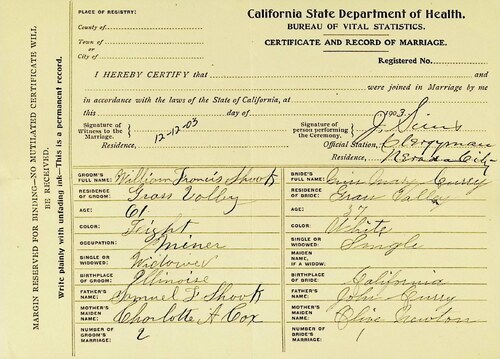 PLACE OF REGISTRY:
County of
Town of
or
City of
California State Department of Health.
BUREAU OF VITAL STATISTICS.
CERTIFICATE AND RECORD OF MARRIAGE.
Registered No.
I HEREBY CERTIFY that and
were joined in Marriage by me
in accordance with the laws of the State of California, at
this day of 1903
Signature of
Witness to the
Marriage.
Residence,
12-12-03
Signature of
person performing
the Ceremony.
J. Sims
Official Station, Clergyman
Residence, Nevada City
GROOM'S
FULL NAME: William Francis Shook
RESIDENCE
OF GROOM: Grass Valley
AGE: 61
COLOR:
OCCUPATION: Miner
SINGLE OR
WIDOWED: Widower
BIRTHPLACE
OF GROOM: Illinoise
FATHER'S
NAME: Samuel Shook
MOTHER'S
MAIDEN
NAME: Charlotte A Cox
NUMBER OF
GROOM'S
MARRIAGE: 2
BRIDE'S
FULL NAME: Mary Curry
RESIDENCE
OF BRIDE: Grass Valley
AGE: 37
COLOR: White
SINGLE OR
WIDOWED: Single
MAIDEN
NAME,
IF A WIDOW:
BIRTHPLACE
OF BRIDE: California
FATHER'S
NAME: John Curry
MOTHER'S
MAIDEN
NAME: Olive Newton
NUMBER OF
BRIDE'S
MARRIAGE: 1
MARGIN RESERVED FOR BINDING—NO MUTILATED CERTIFICATE WILL
BE RECEIVED.
Write plainly with unfading ink—This is a permanent record.